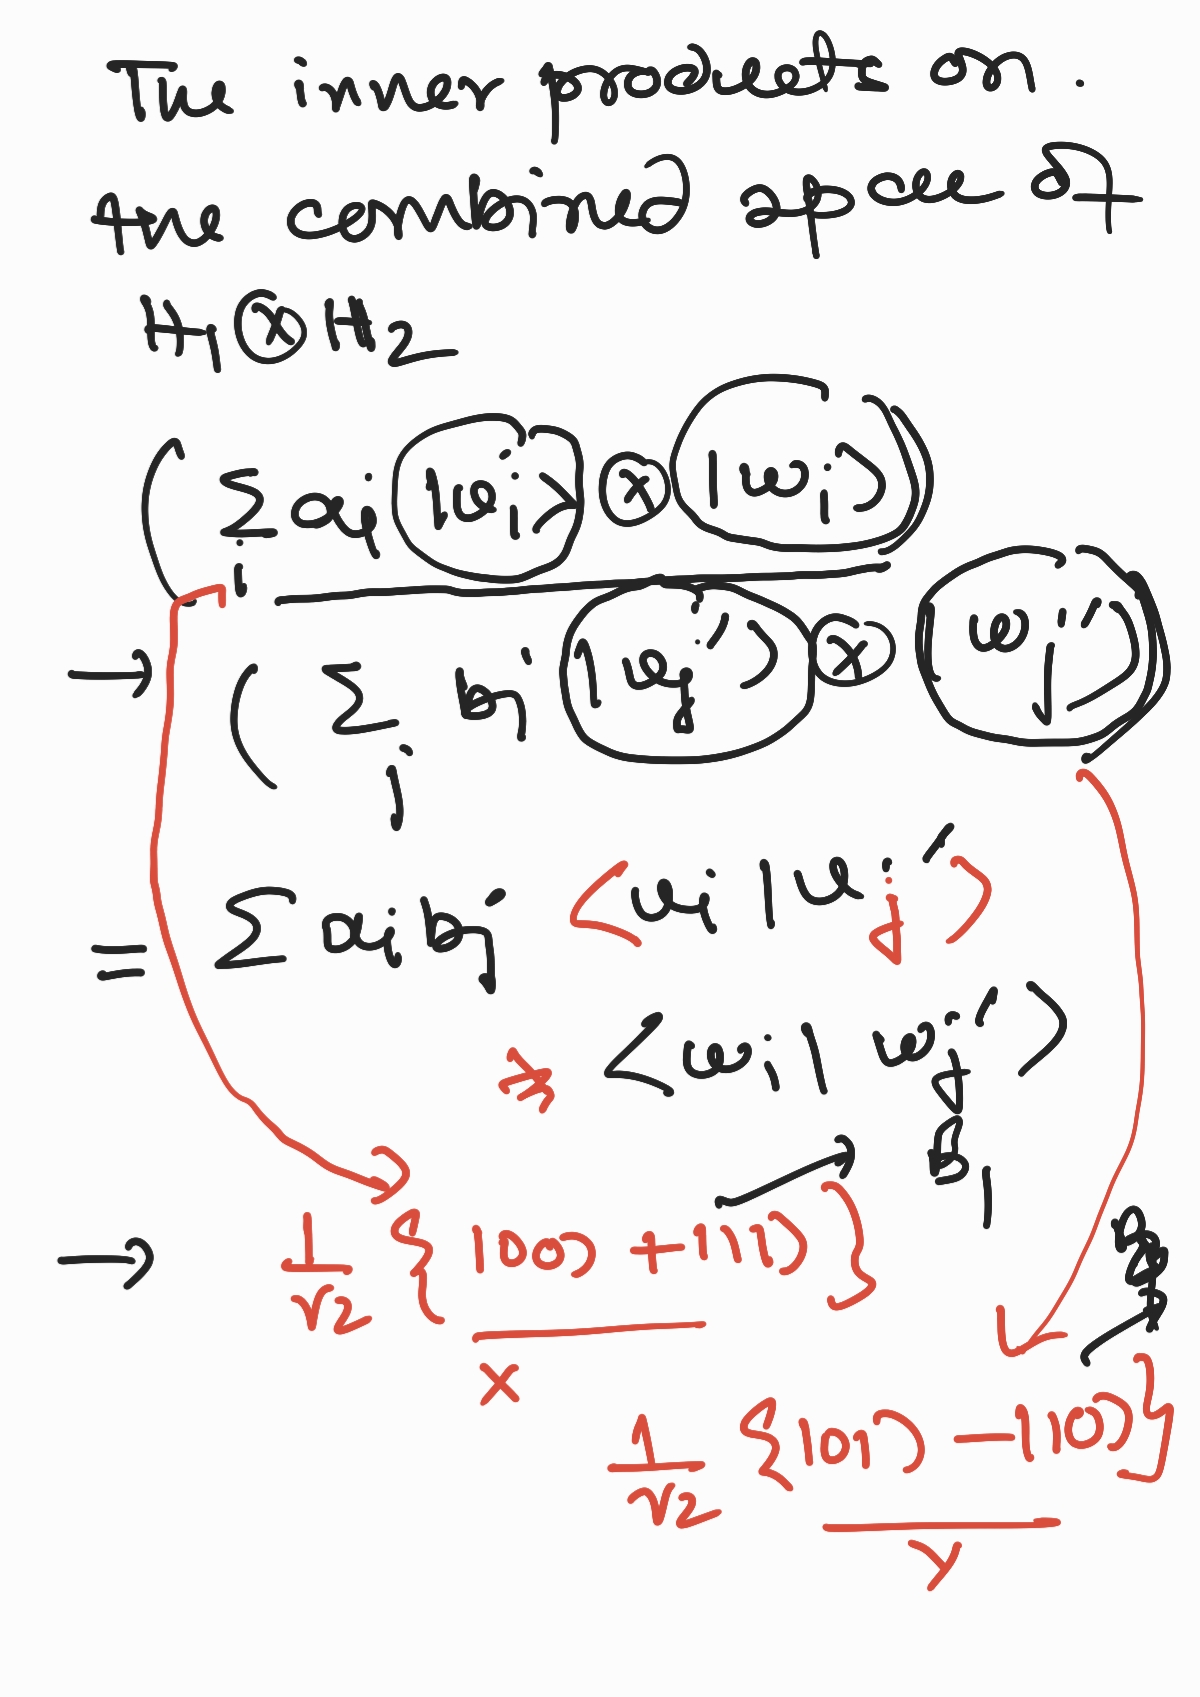 The inner products on.
the combined space of
H₁ ⊗ H₂
( Σ_i a_i |v_i⟩ ⊗ |w_i⟩ )
→ ( Σ_j b_j |v_j'⟩ ⊗ w_j'⟩ )
= Σ a_i b_j ⟨v_i | v_j'⟩
* ⟨w_i | w_j'⟩
B₁
→ 1/√2 { |00⟩ + |11⟩ }
x
1/√2 { |01⟩ - |10⟩ }
y